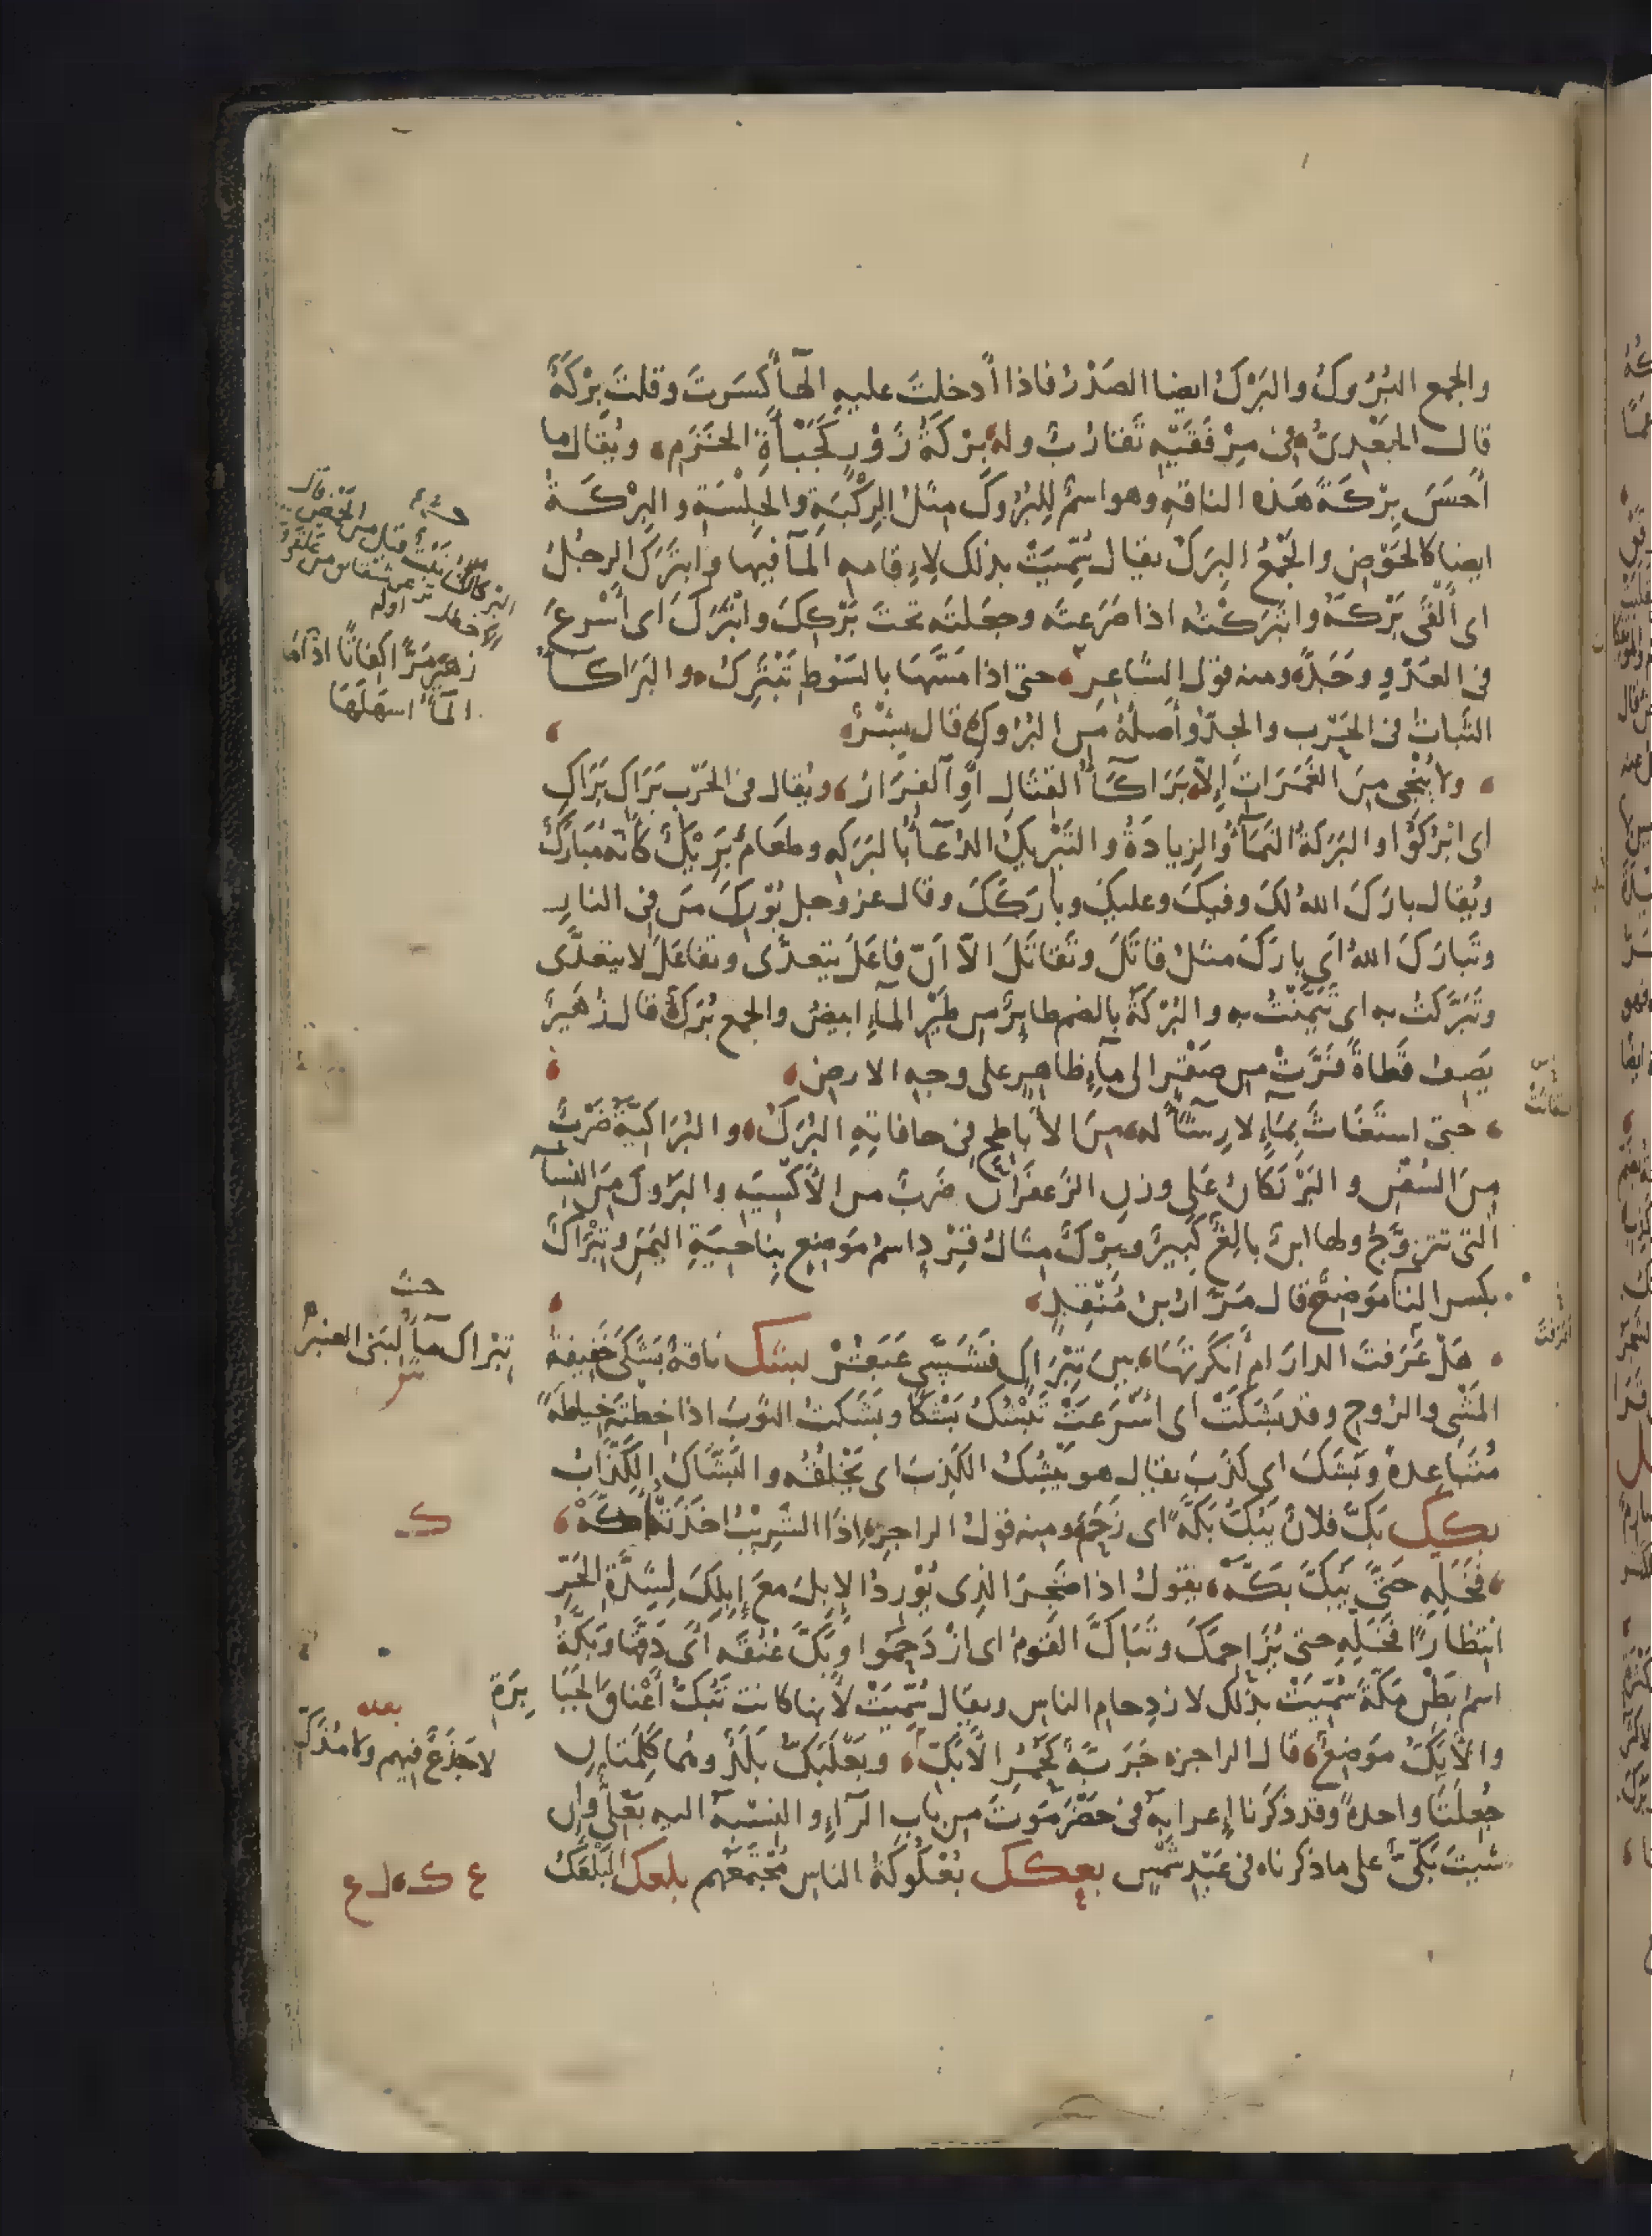 والجمع البُرُوكُ والبَرْكُ ايضا الصَدْرُ فاذا أدخلتَ عليه الهاءَ كسَرتَ وقلتَ بِرْكَةٌ
قال الجَعْدِىُّ، فى مِرْفَقَيْهِ تَقَارُبٌ وله، بِرْكَةُ زَوْرٍ كَجَبْأَةِ الخَزَمِ، ويُقال ما
أَحسَنَ بِرْكَةَ هَذه الناقه وهو اسمٌ لِلبُرُوكِ مِثلُ الرِكْبَةِ والجَلْسَةِ والبِرْكَةُ
ايضا كالحَوْضِ والجَمْعُ البِرَكُ يقال سُمِّيَتْ بذلك لِإقامه المآ فيها وابتَرَكَ الرجُلُ
اى ألْقَى بَرْكَهُ وابتَرَكْتُه اذا صَرَعتَه وجَعَلتَه تحتَ بَرْكِكَ وابْتَرَكَ اى أسْرعَ
فى العَدْوِ وجَدَّ، ومنه قول الشاعِر، حتى اذا مَسَّهَا بالسَوْطِ تَبْتَرِكُ، والبَرَاكآءُ
الثَباتُ فى الحَرْب والجِدُّ وأصلُهُ مِن البُرُوك، قال بِشْرٌ،
، ولا يُنْجِى مِنَ الغَمَرَاتِ إلاّ، بَرَاكآءُ القِتَالِ أوِ الفِرَارُ، ويُقال فى الحَرْب بَرَاكِ بَرَاكِ
اى ابْرُكُوا والبَرَكَةُ النَمَآءُ والزِيادَةُ والتَبْرِيكُ الدُعَآءُ بالبَرَكَه وطعَامٌ بَرِيْكٌ كأنّه مُبَارَكٌ
ويُقال بارَكَ اللهُ لكَ وفيكَ وعليكَ وبارَكَكَ وقال عز وجل بُورِكَ مَن فِى النارِ
وتَبَارَكَ اللهُ اى بارَكَ مثلُ قاتَلَ وتَقَاتَلَ الاّ انّ فاعَلَ يتعدَّى وتفاعَلَ لا يتعدَّى
وتَبَرَّكتُ به اى تَيَمَّنْتُ به والبُرْكَةُ بالضم طايِرٌ من طَيْرِ المآءِ ابيضُ والجمع بُرَكٌ قال زُهَيرٌ
يَصِفُ قَطَاةً فَرَّتْ من صَقْرٍ الى مآءٍ ظاهِرٍ على وجهِ الارضِ،
، حتى استَغَاثَ بِمَآءٍ لا رِشآءَ له، مِنَ الأبَاطِحِ فى حافاتِهِ البُرَكُ، والبُرَاكِيَّةُ ضَرْبٌ
مِنَ السُفُنِ والبَرَّنَكَانُ عَلَى وزنِ الزَعفَرَانِ ضَربٌ من الأكْسِيَهِ والبَرُوكُ مِنَ النِسآ
الَّتِى تتزوَّجُ ولها ابنٌ بالِغٌ كَبِيرٌ وبِرْكٌ مثالُ قِرْدٍ اسمُ مَوضِعٍ بِناحيَةِ اليَمَنِ وتِبْرَاكٌ
بكسر التا مَوضِعٌ قال مَرّارُ بنُ مُنْقِذٍ،
، هَلْ عَرَفتَ الدارَ ام أنكَرتَهَا، بينَ تِبْرَاكٍ فَشَسَّىْ عَبَقُرْ بشك ناقَةٌ بَشَكَى خَفِيفَةُ
المَشْىِ والرُوحِ وقد بَشَكَتْ اى اسْرَعَتْ تَبْشُكُ بَشْكًا وبَشَكتُ الثوبَ اذا خِطْتَه خِياطَةً
مُتَبَاعِدةً وبَشَكَ اى كذَبَ يقال هو يَبْشُكُ الكَذِبَ اى يَخْلُقُه والبَشَّاكُ الكَذّابُ
بكك بَكَّ فلانٌ يَبُكُّ بَكَّةً اى زَحَمَ ومنه قولُ الراجز، اذا الشَرِيْبُ اخَذَتْهُ أكَّهْ،
، فَخَلِّهِ حَتَّى يَبُكَّ بَكَّهْ، يقولُ اذا ضَجِرَ الذِى يُوْرِدُ الإبلَ معَ إبلِكَ لِشِدَّةِ الحَرِّ
انتظارًا فَخَلِّهِ حتى يُزَاحِمَكَ وتَبَاكَّ القَومُ اى ازْدَحَمُوا وبَكَّ عُنُقَه أى دَقَّها وبَكَّةُ
اسمُ بَطْنِ مَكّةَ سُمِّيَتْ بذلك لازدِحامِ الناسِ ويقال سُمِّيَتْ لأنها كانت تَبُكُّ أعْنَاقَ الجَبَا
بِرَةِ
والأبَكُّ مَوضِعٌ، قال الراجز، جَرَبَّةٌ كحُمُرِ الأبَكِّ، وبَعْلَبَكُّ بَلَدٌ وهُما كَلِمَتَانِ
جُعِلَتَا واحدةً وقد ذكَرنا إعرابَهُ فى حَضْرَمَوتَ مِن باب الرآءِ والنِسْبَهُ اليه بَعْلِىٌّ وإن
شيتَ بَكِّىٌّ على ما ذكرناه فى عَبْدِ شَمْسٍ بعكك بُعْكُوكَةُ الناسِ مُجْتَمَعُهم بلعك البَلْعَكُ
تِبْرَاك مآءٌ لبَنى العنبر
لا جَذَعٌ فيهم ولا مُذَكِّ
بعده
زهير
اولُه
المآء اسهَلَهَا
ك
ع ك ل ع